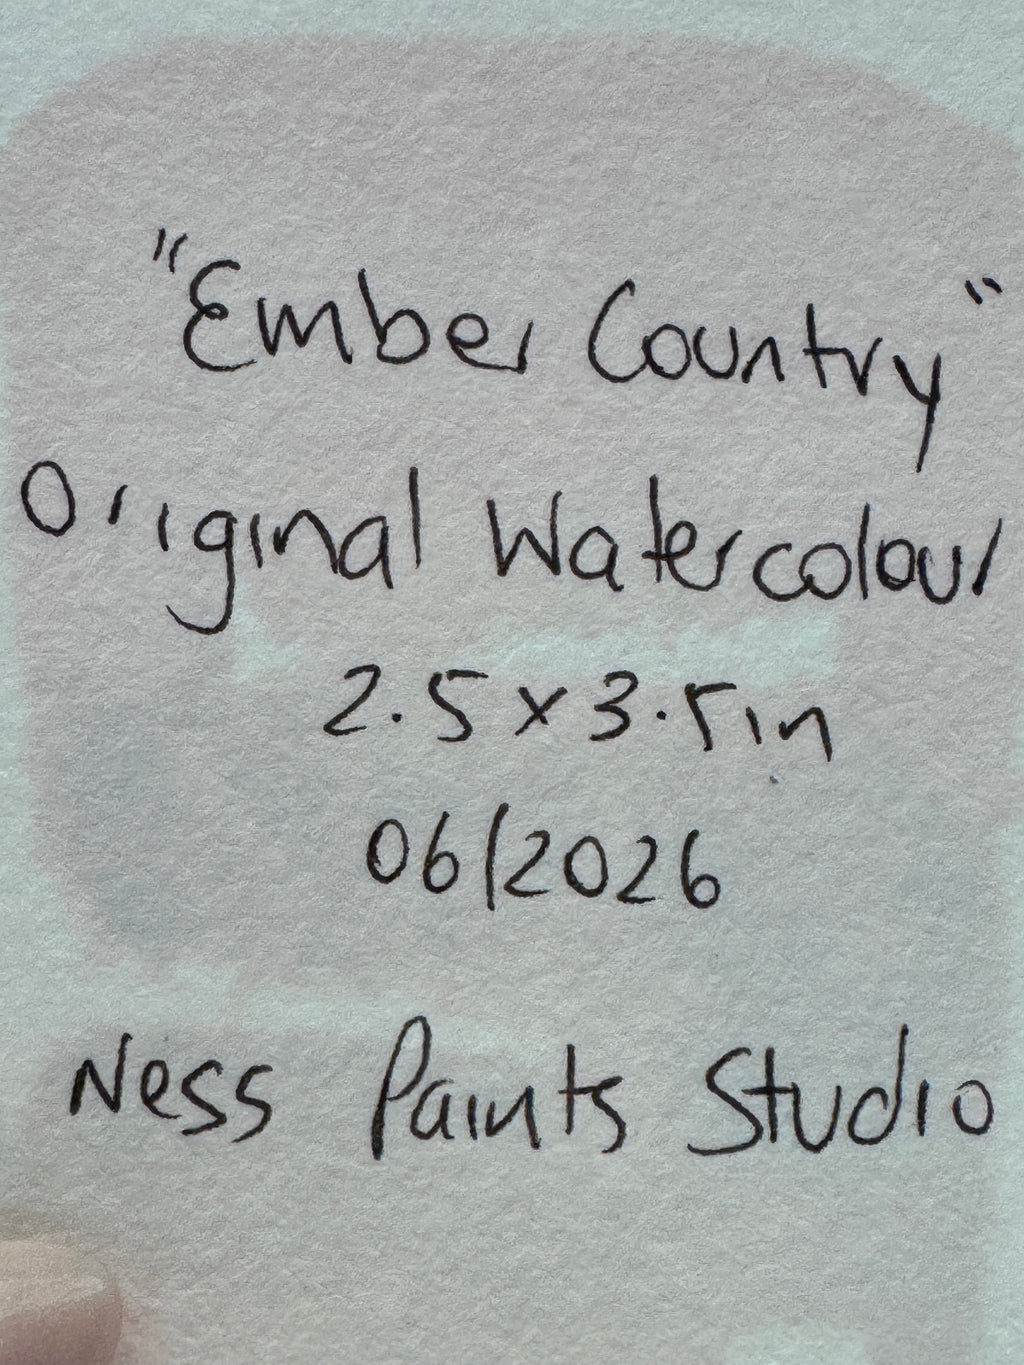 "Ember Country"
Original Watercolour
2.5 x 3.5in
06/2026
Ness Paints Studio